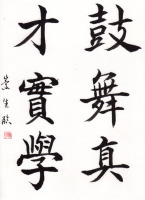 鼓舞真
才實學